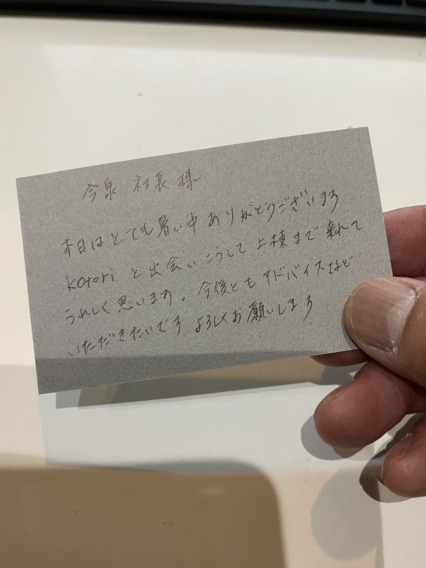 今泉 社長 様
本日はとても暑い中ありがとうございます
kotori と出会いこうして上棟まで来れて
うれしく思います。今後ともアドバイスなど
いただきたいです よろしくお願いします